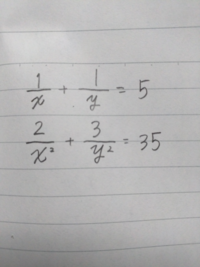 1/x + 1/y = 5
2/x² + 3/y² = 35